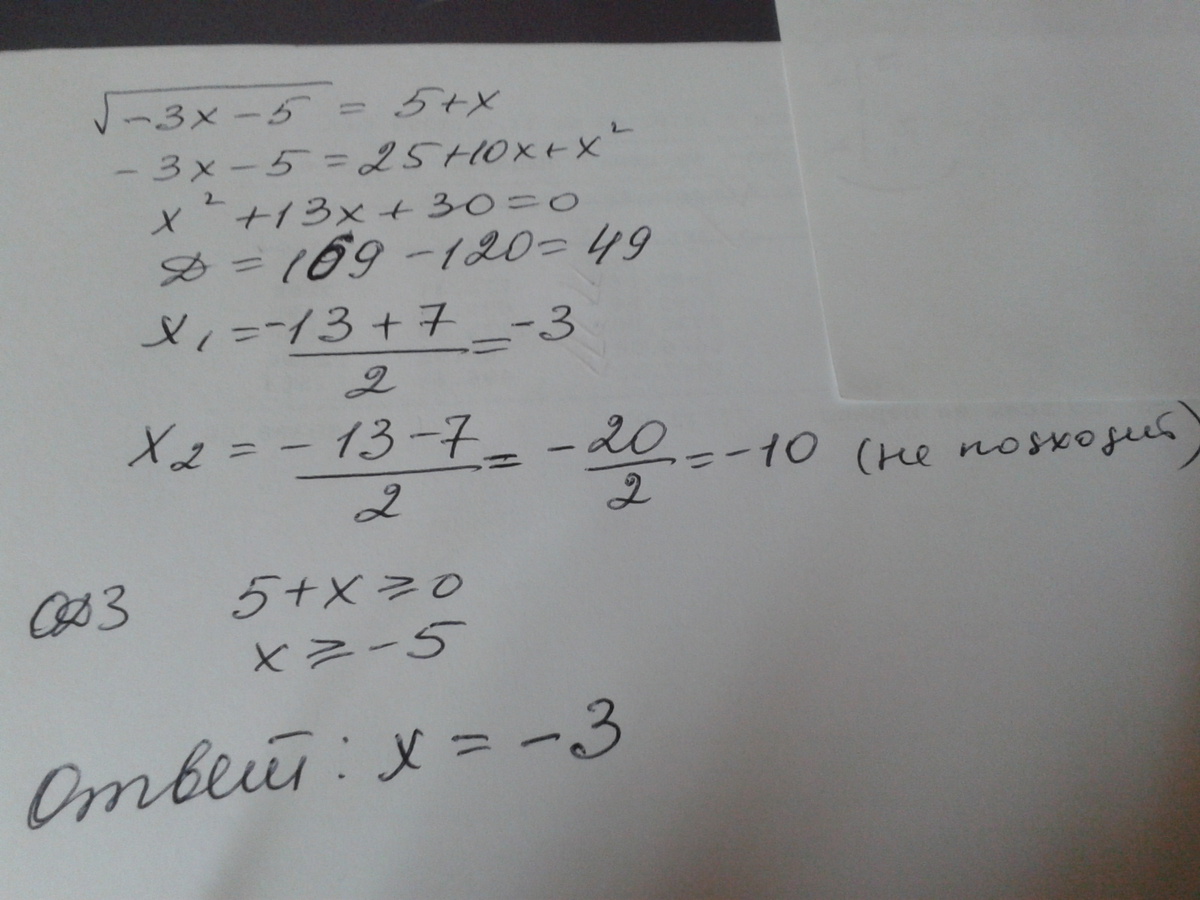 √(-3x-5) = 5+x
-3x-5=25+10x+x²
x²+13x+30=0
D = 169-120=49
x₁ = (-13+7)/2 = -3
x₂ = (-13-7)/2 = -20/2 = -10 (не подходит)
ОДЗ 5+x≥0
x≥-5
Ответ: x = -3